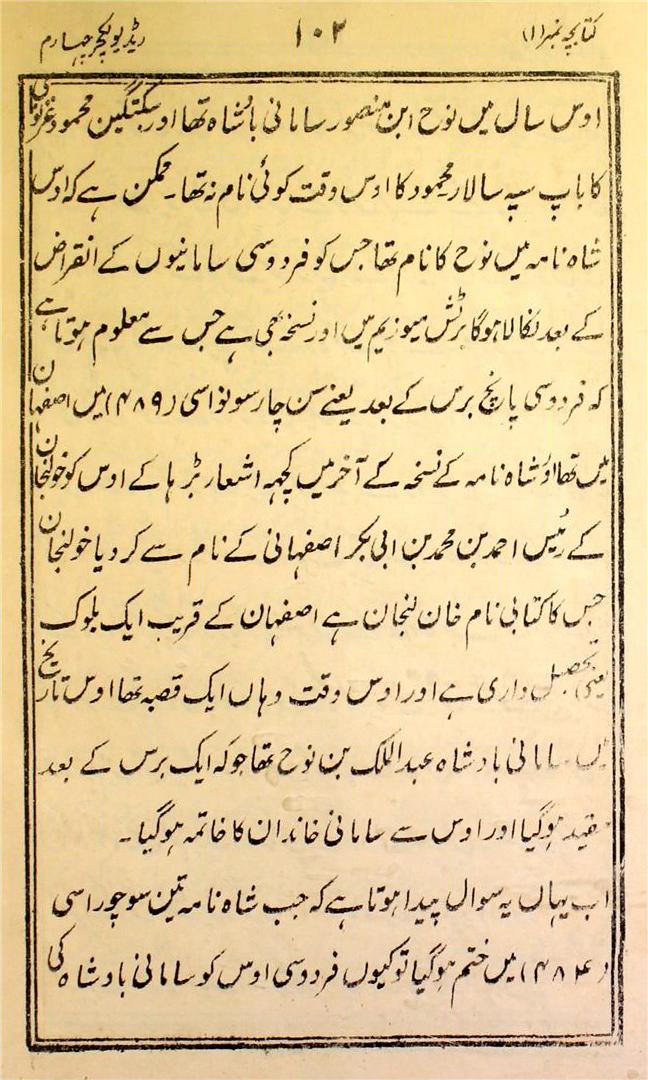 کتابچہ نمبر (۱)
۱۰۲
ریڈیو لکچر چہارم
اوس سال میں نوح ابن منصور سامانی بادشاہ تھا اور سبکتگین محمود غزنوی
کا باپ سپہ سالار محمود کا اوس وقت کوئی نام نہ تھا۔ ممکن ہے کہ اوس
شاہ نامہ میں نوح کا نام تھا جس کو فردوسی سامانیوں کے انقراض
کے بعد نکالا ہوگا برٹش میوزیم میں اور نسخہ بھی ہے جس سے معلوم ہوتا ہے
کہ فردوسی پانچ برس کے بعد یعنے سن چار سو نواسی (۴۸۹) میں اصفہان
میں تھا اور شاہ نامہ کے نسخہ کے آخر میں کچہہ اشعار بڑہا کے اوس کو خولنجان
کے رئیس احمد بن محمد بن ابی بکر اصفہانی کے نام سے کر دیا خولنجان
جس کا کتابی نام خان لنجان ہے اصفہان کے قریب ایک بلوک
یعنی تحصیل داری ہے اور اوس وقت وہاں ایک قصبہ تھا اوس تاریخ
میں سامانی بادشاہ عبدالملک بن نوح تھا جو کہ ایک برس کے بعد
مقید ہوگیا اور اوس سے سامانی خاندان کا خاتمہ ہوگیا۔
اب یہاں یہ سوال پیدا ہوتا ہے کہ جب شاہ نامہ تین سو چوراسی
(۴۸۴) میں ختم ہوگیا تو کیوں فردوسی اوس کو سامانی بادشاہ کی